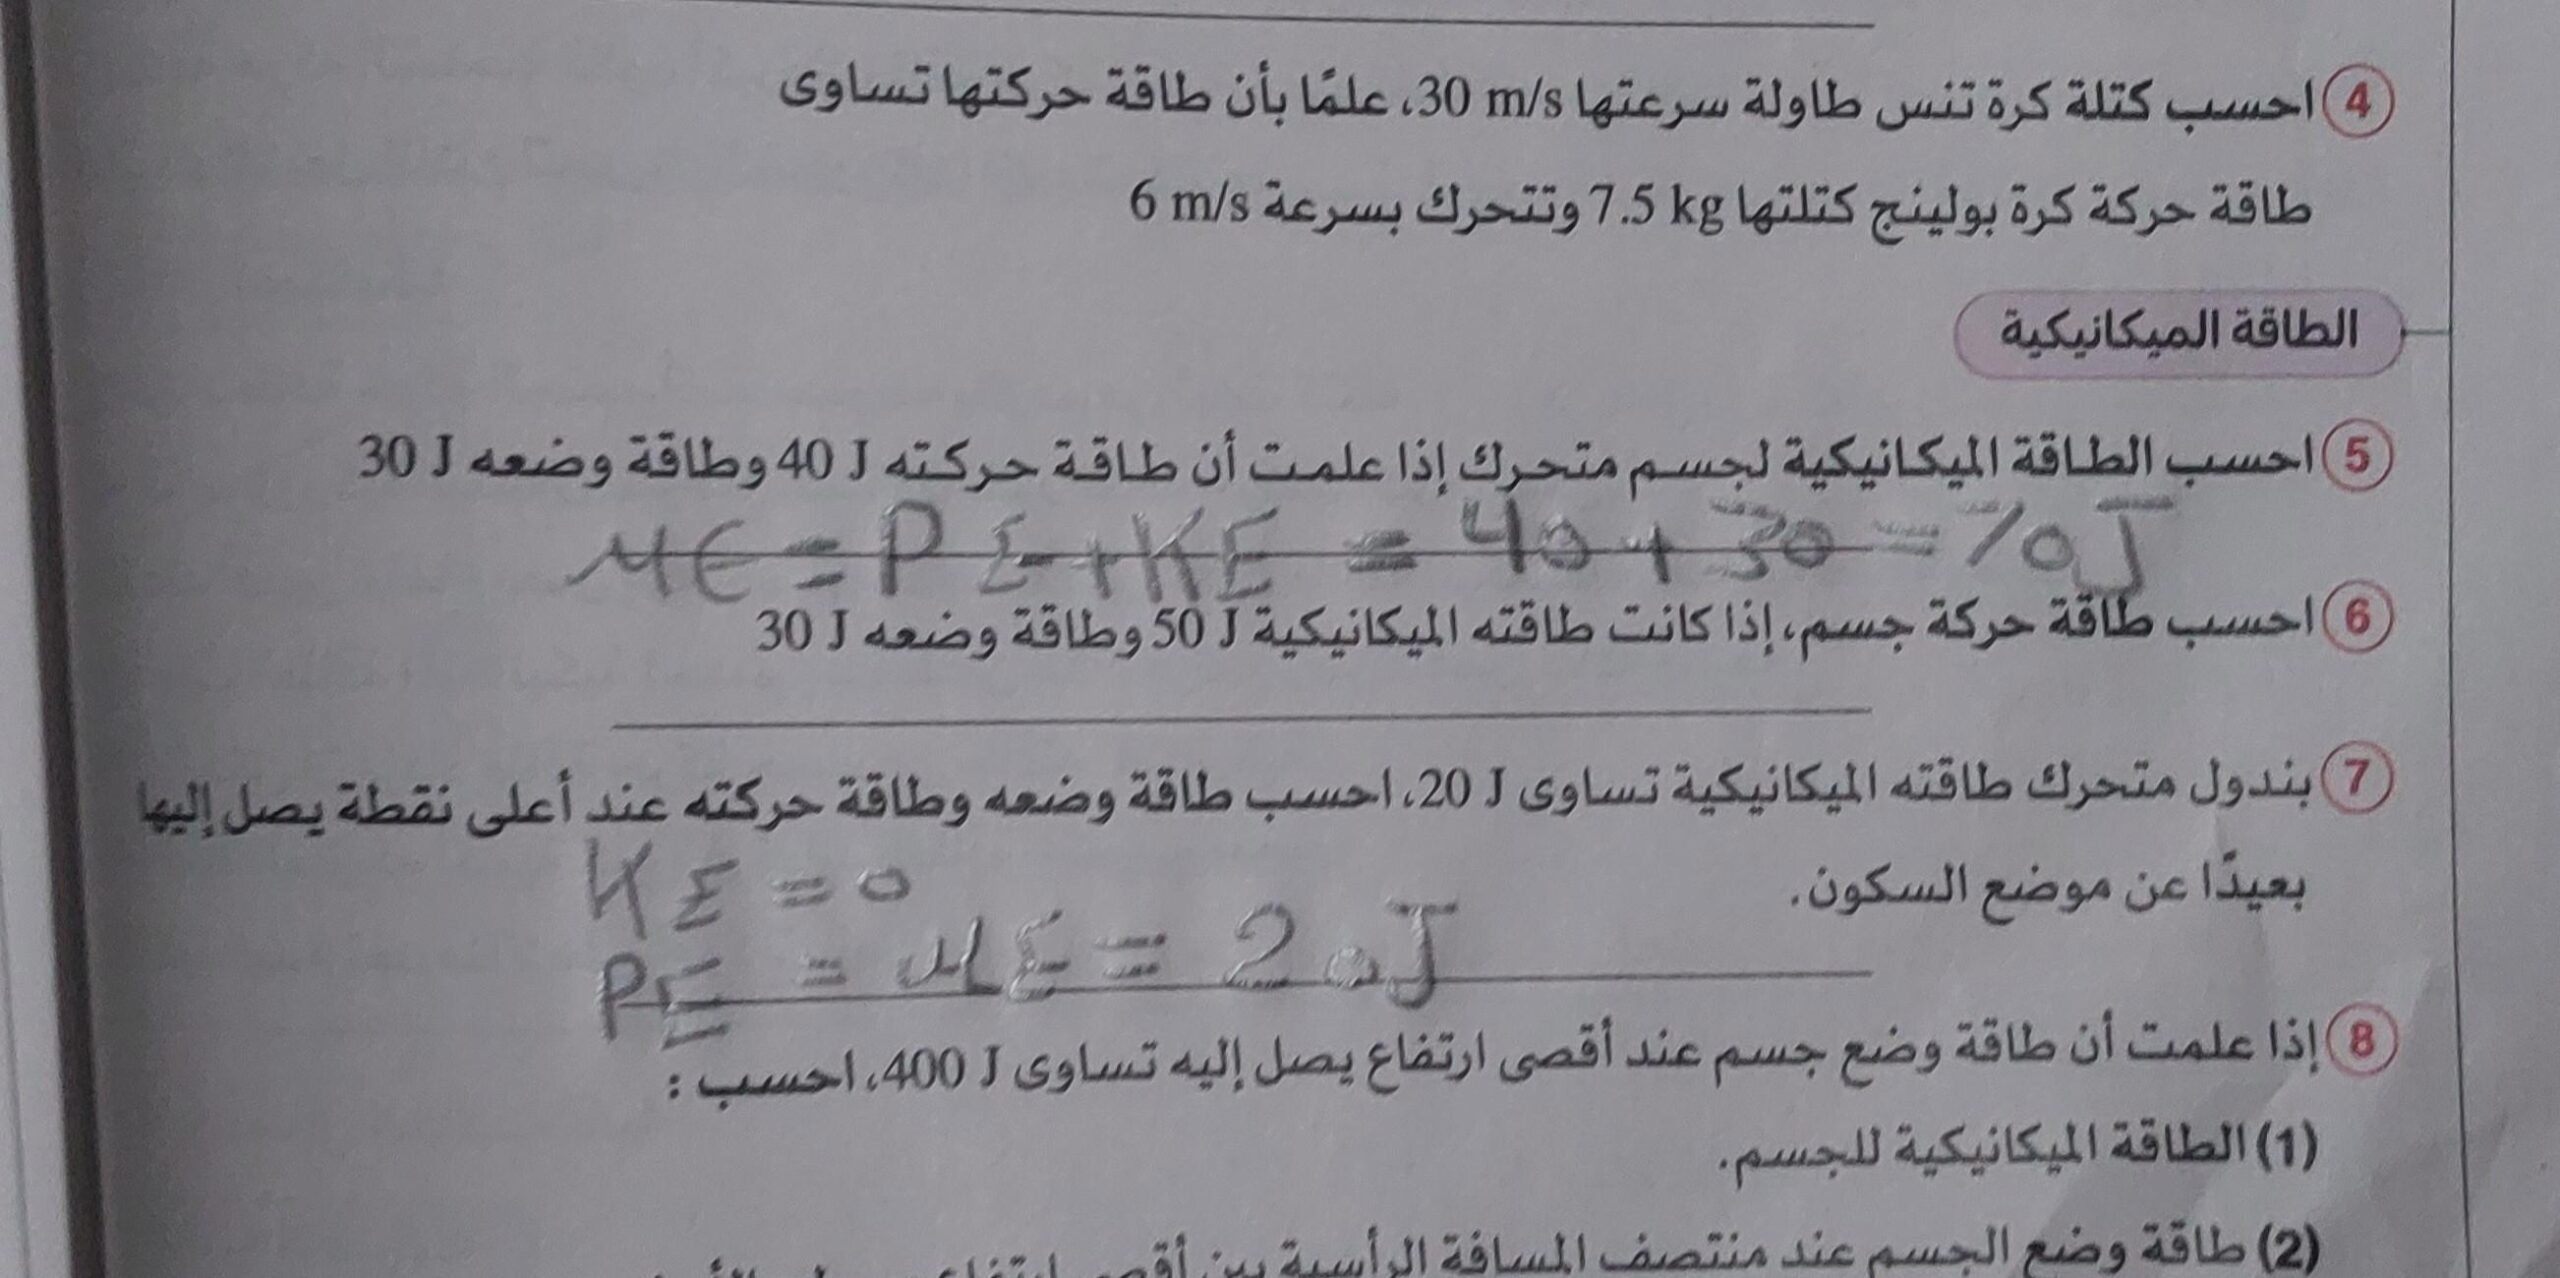 ④ احسب كتلة كرة تنس طاولة سرعتها 30 m/s، علمًا بأن طاقة حركتها تساوى
طاقة حركة كرة بولينج كتلتها 7.5 kg وتتحرك بسرعة 6 m/s
الطاقة الميكانيكية
⑤ احسب الطاقة الميكانيكية لجسم متحرك إذا علمت أن طاقة حركته 40 J وطاقة وضعه 30 J
ME = PE + KE = 40 + 30 = 70 J
⑥ احسب طاقة حركة جسم، إذا كانت طاقته الميكانيكية 50 J وطاقة وضعه 30 J
⑦ بندول متحرك طاقته الميكانيكية تساوى 20 J، احسب طاقة وضعه وطاقة حركته عند أعلى نقطة يصل إليها
بعيدًا عن موضع السكون.
KE = 0
PE = ME = 20 J
⑧ إذا علمت أن طاقة وضع جسم عند أقصى ارتفاع يصل إليه تساوى 400 J، احسب :
(1) الطاقة الميكانيكية للجسم.
(2) طاقة وضع الجسم عند منتصف المسافة الرأسية بين أقصى